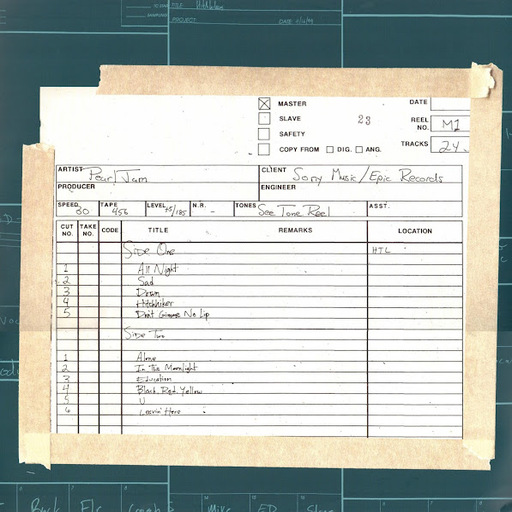 TITLE
PROJECT
DATE
MASTER
DATE
SLAVE
23
REEL NO. M1
SAFETY
COPY FROM DIG. ANG.
TRACKS 24
ARTIST Pearl Jam
CLIENT Sony Music/Epic Records
PRODUCER
ENGINEER
SPEED 30
TAPE 456
LEVEL +5/185
N.R. -
TONES See Tone Reel
ASST.
CUT NO. TAKE NO. CODE TITLE REMARKS LOCATION
Side One HTL
1 All Night
2 Sad
3 Down
4 Hitchhiker
5 Don't Gimme No Lip
Side Two
1 Alone
2 In The Moonlight
3 Education
4 Black, Red, Yellow
5 U
6 Leavin' Here